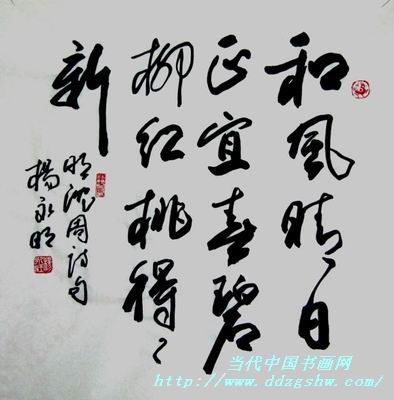 和風晴日
正宜春碧
柳红桃得〻
新
明沈周诗句
楊永明
当代中国书画网
http://www.ddzgshw.com